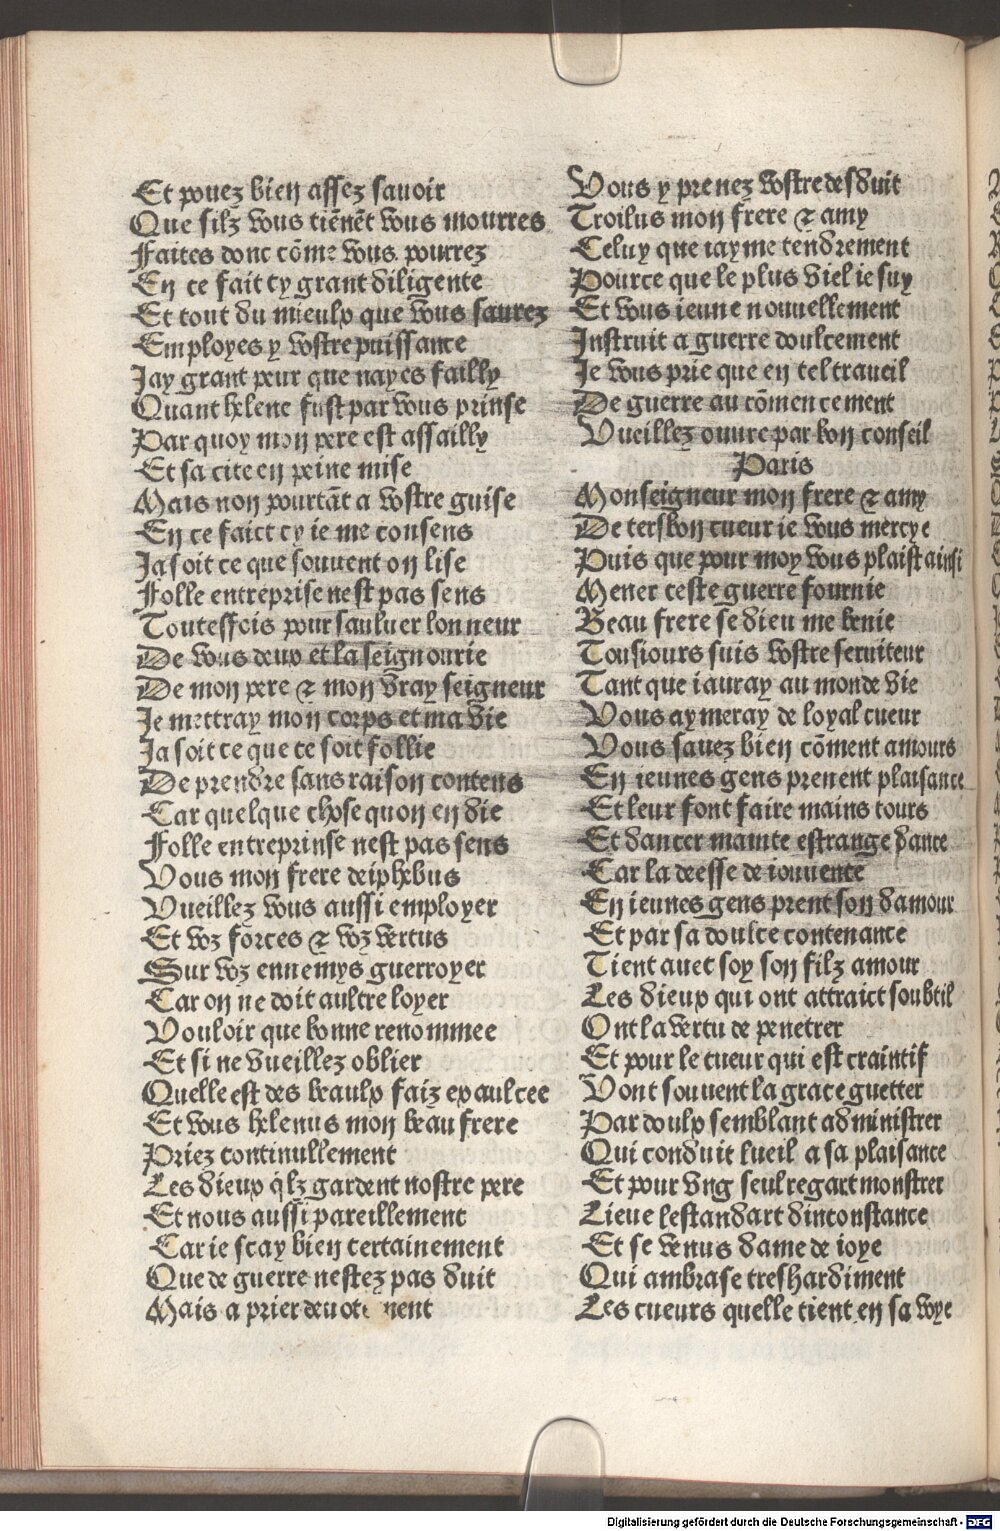 Et pouez bien assez sauoir
Que silz vous tiēnēt vous mourres
Faites donc cōme vous pourrez
En ce fait cy grant diligente
Et tout du mieulx que vous saurez
Employes y vostre puissance
Jay grant peur que nayes failly
Quant helene fust par vous prinse
Par quoy mon pere est assailly
Et sa cite en peine mise
Mais non pourtāt a vostre guise
En ce faict cy ie me consens
Ja soit ce que souuent on lise
Folle entreprise nest pas sens
Toutesfois pour sauluer lonneur
De vous deux et la seignourie
De mon pere & mon vray seigneur
Je mettray mon corps et ma vie
Ja soit ce que ce soit follie
De prendre sans raison contens
Car quelque chose quon en die
Folle entreprinse nest pas sens
Vous mon frere deiphebus
Vueillez vous aussi employer
Et voz forces & voz vertus
Sur voz ennemys guerroyer
Car on ne doit aultre loyer
Vouloir que bonne renommee
Et si ne vueillez oblier
Quelle est des beaulx faiz exaulcee
Et vous helenus mon beau frere
Priez continullement
Les dieux q̄lz gardent nostre pere
Et nous aussi pareillement
Car ie scay bien certainement
Que de guerre nestez pas duit
Mais a prier
Vous y prenez vostre desduit
Troilus mon frere & amy
Celuy que iayme tendrement
Pource que le plus viel ie suy
Et vous ieune nouuellement
Instruit a guerre doulcement
Je vous prie que en tel traueil
De guerre au cōmencement
Vueillez ouure par bon conseil
Paris
Monseigneur mon frere & amy
De tersbon cueur ie vous mercye
Puis que pour moy vous plaist ainsi
Mener ceste guerre fournie
Beau frere se dieu me benie
Tousiours suis vostre seruiteur
Tant que iauray au monde vie
Vous aymeray de loyal cueur
Vous sauez bien cōment amours
En ieunes gens prenent plaisance
Et leur font faire mains tours
Et dancer mainte estrange dance
Car la deesse de iouuence
En ieunes gens prent son damour
Et par sa doulce contenance
Tient auec soy son filz amour
Les dieux qui ont attraict soubtil
Ont la vertu de penetrer
Et pour le cueur qui est craintif
Vont souuent la grace guetter
Par doulx semblant administrer
Qui conduit lueil a sa plaisance
Et pour vng seul regart monstrer
Lieue lestandart dinconstance
Et se venus dame de ioye
Qui ambrase treshardiment
Les cueurs quelle tient en sa voye
Digitalisierung gefördert durch die Deutsche Forschungsgemeinschaft - DFG